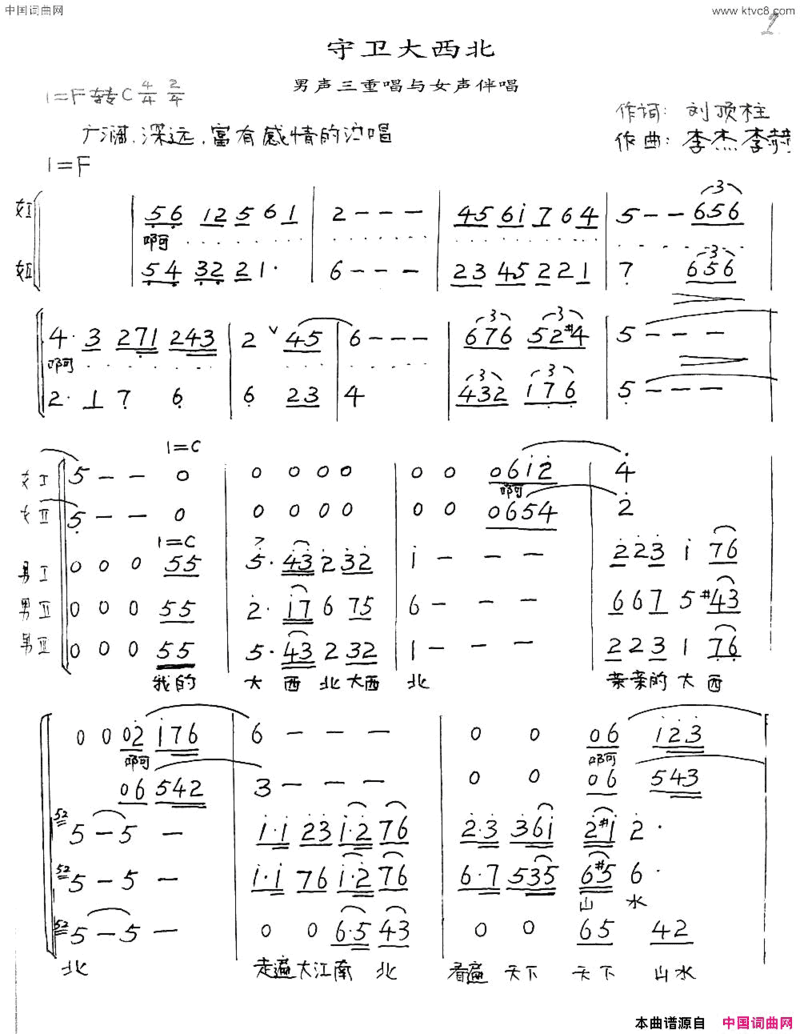 中国词曲网
www.ktvc8.com
2
守卫大西北
男声三重唱与女声伴唱
1=F转C 4/4 2/4
作词:刘顶柱
广阔.深远,富有感情的演唱
作曲:李杰 李赫
1=F
女I 56 12 5 6 1 | 2 - - - | 45 61 7 6 4 | 5 - - 656
啊
女II 54 32 2 1· | 6 - - - | 23 45 2 2 1 | 7 656
4·3 271 243 | 2 ∨ 45 | 6 - - - | 676 52#4 | 5 - - -
啊
2·1 7 6 | 6 23 | 4 | 432 176 | 5 - - -
1=C
女I 5 - - 0 | 0 0 0 0 | 0 0 0612 | 4
啊
女II 5 - - 0 | 0 0 0 0 | 0 0 0654 | 2
1=C
男I 0 0 0 55 | 5·43 2 32 | 1 - - - | 2 23 1 76
男II 0 0 0 55 | 2·17 6 75 | 6 - - - | 6 67 5 #43
男III 0 0 0 55 | 5·43 2 32 | 1 - - - | 2 23 1 76
我的 大 西 北 大西 北 亲亲的 大 西
0 0 02 176 | 6 - - - | 0 0 06 123
啊 啊
06 542 | 3 - - - | 0 0 06 543
52 5 - 5 - | 1·1 23 1·2 76 | 2·3 361 2#1 2·
52 5 - 5 - | 1·1 76 1·2 76 | 6·7 535 6#5 6·
山 水
52 5 - 5 - | 0 0 6·5 43 | 0 0 65 42
北 走遍大江南 北 看遍 天下 天下 山水
本曲谱源自 中国词曲网